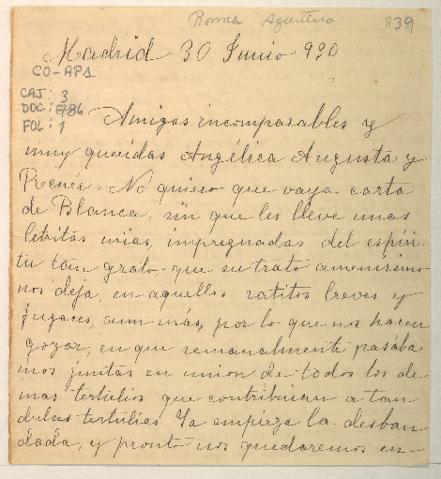 Romea Agustina
839
Madrid 30 Junio 930
CO-APA
CAJ: 3
DOC: 786
FOL: 1
Amigas incomparables y
muy queridas Angélica Augusta y
Renée. No quiero que vaya carta
de Blanca, sin que les lleve unas
letritas mias, impregnadas del espiri-
tu tan grato que su trato amenisimo
nos deja, en aquellos ratitos breves y
fugaces, aun más, por lo que nos hacen
gozar, en que semanalmente pasába
mos juntas en union de todos los de
mas tertulios que contribuian a tan
dulces tertulias. Ya empieza la desban
dada, y pronto nos quedaremos en-